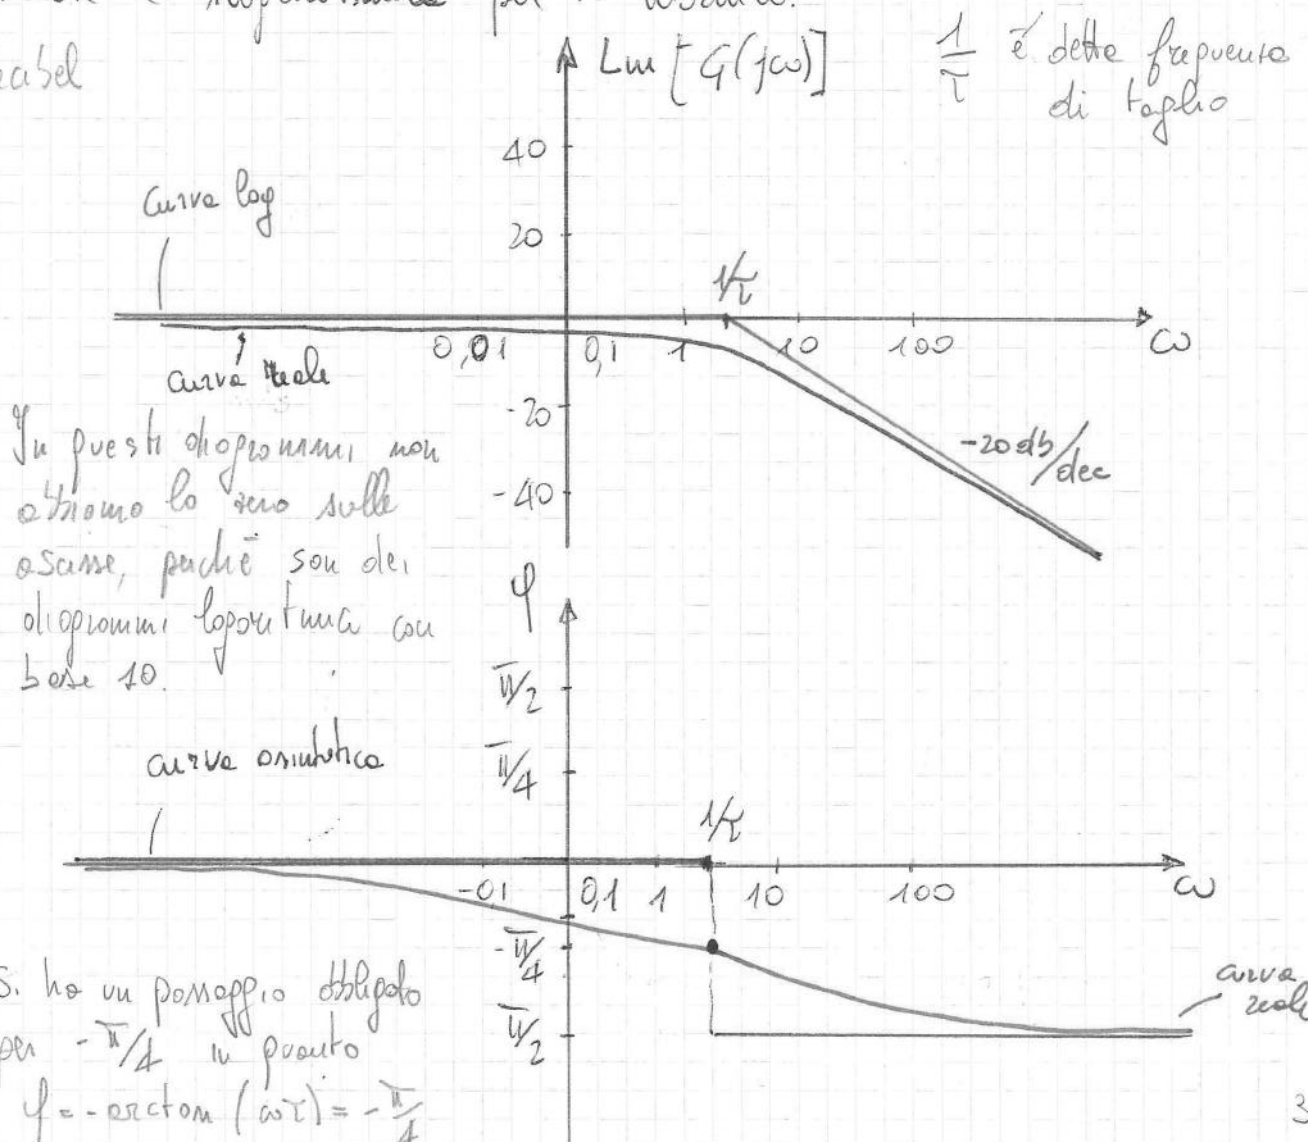 per
Lm [G(jω)]
1/τ è detta frequenza
di taglio
40
curva log
20
1/τ
0,01 0,1 1 10 100 ω
curva reale
-20
-20 db/dec
-40
In questi diagrammi non
abbiamo lo zero sulle
ascisse, perché son dei
diagrammi logaritmici con
base 10.
φ
π/2
curva asintotica
π/4
1/τ
-01 0,1 1 10 100 ω
-π/4
curva
reale
π/2
S. ha un passaggio obbligato
per -π/4 in quanto
φ = -arctan (ωτ) = -π/4
3